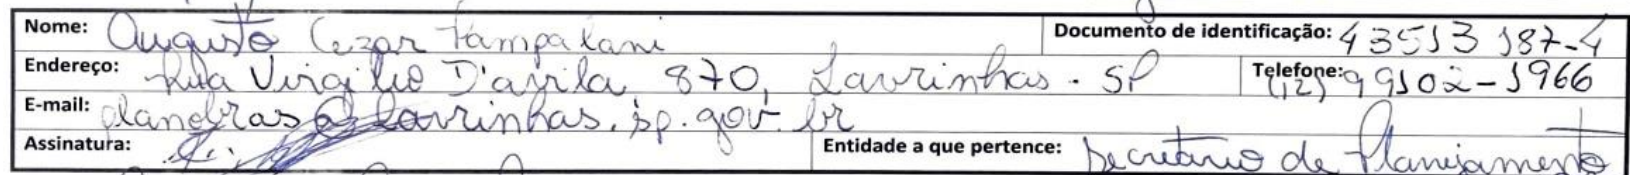 Nome: Augusto Cezar Pampalani Documento de identificação: 43513187-4
Endereço: Rua Virgilio D'avila, 870, Lavrinhas - SP Telefone: (12) 99102-1966
E-mail: planobras@lavrinhas.sp.gov.br
Assinatura: Entidade a que pertence: Secretário de Planejamento